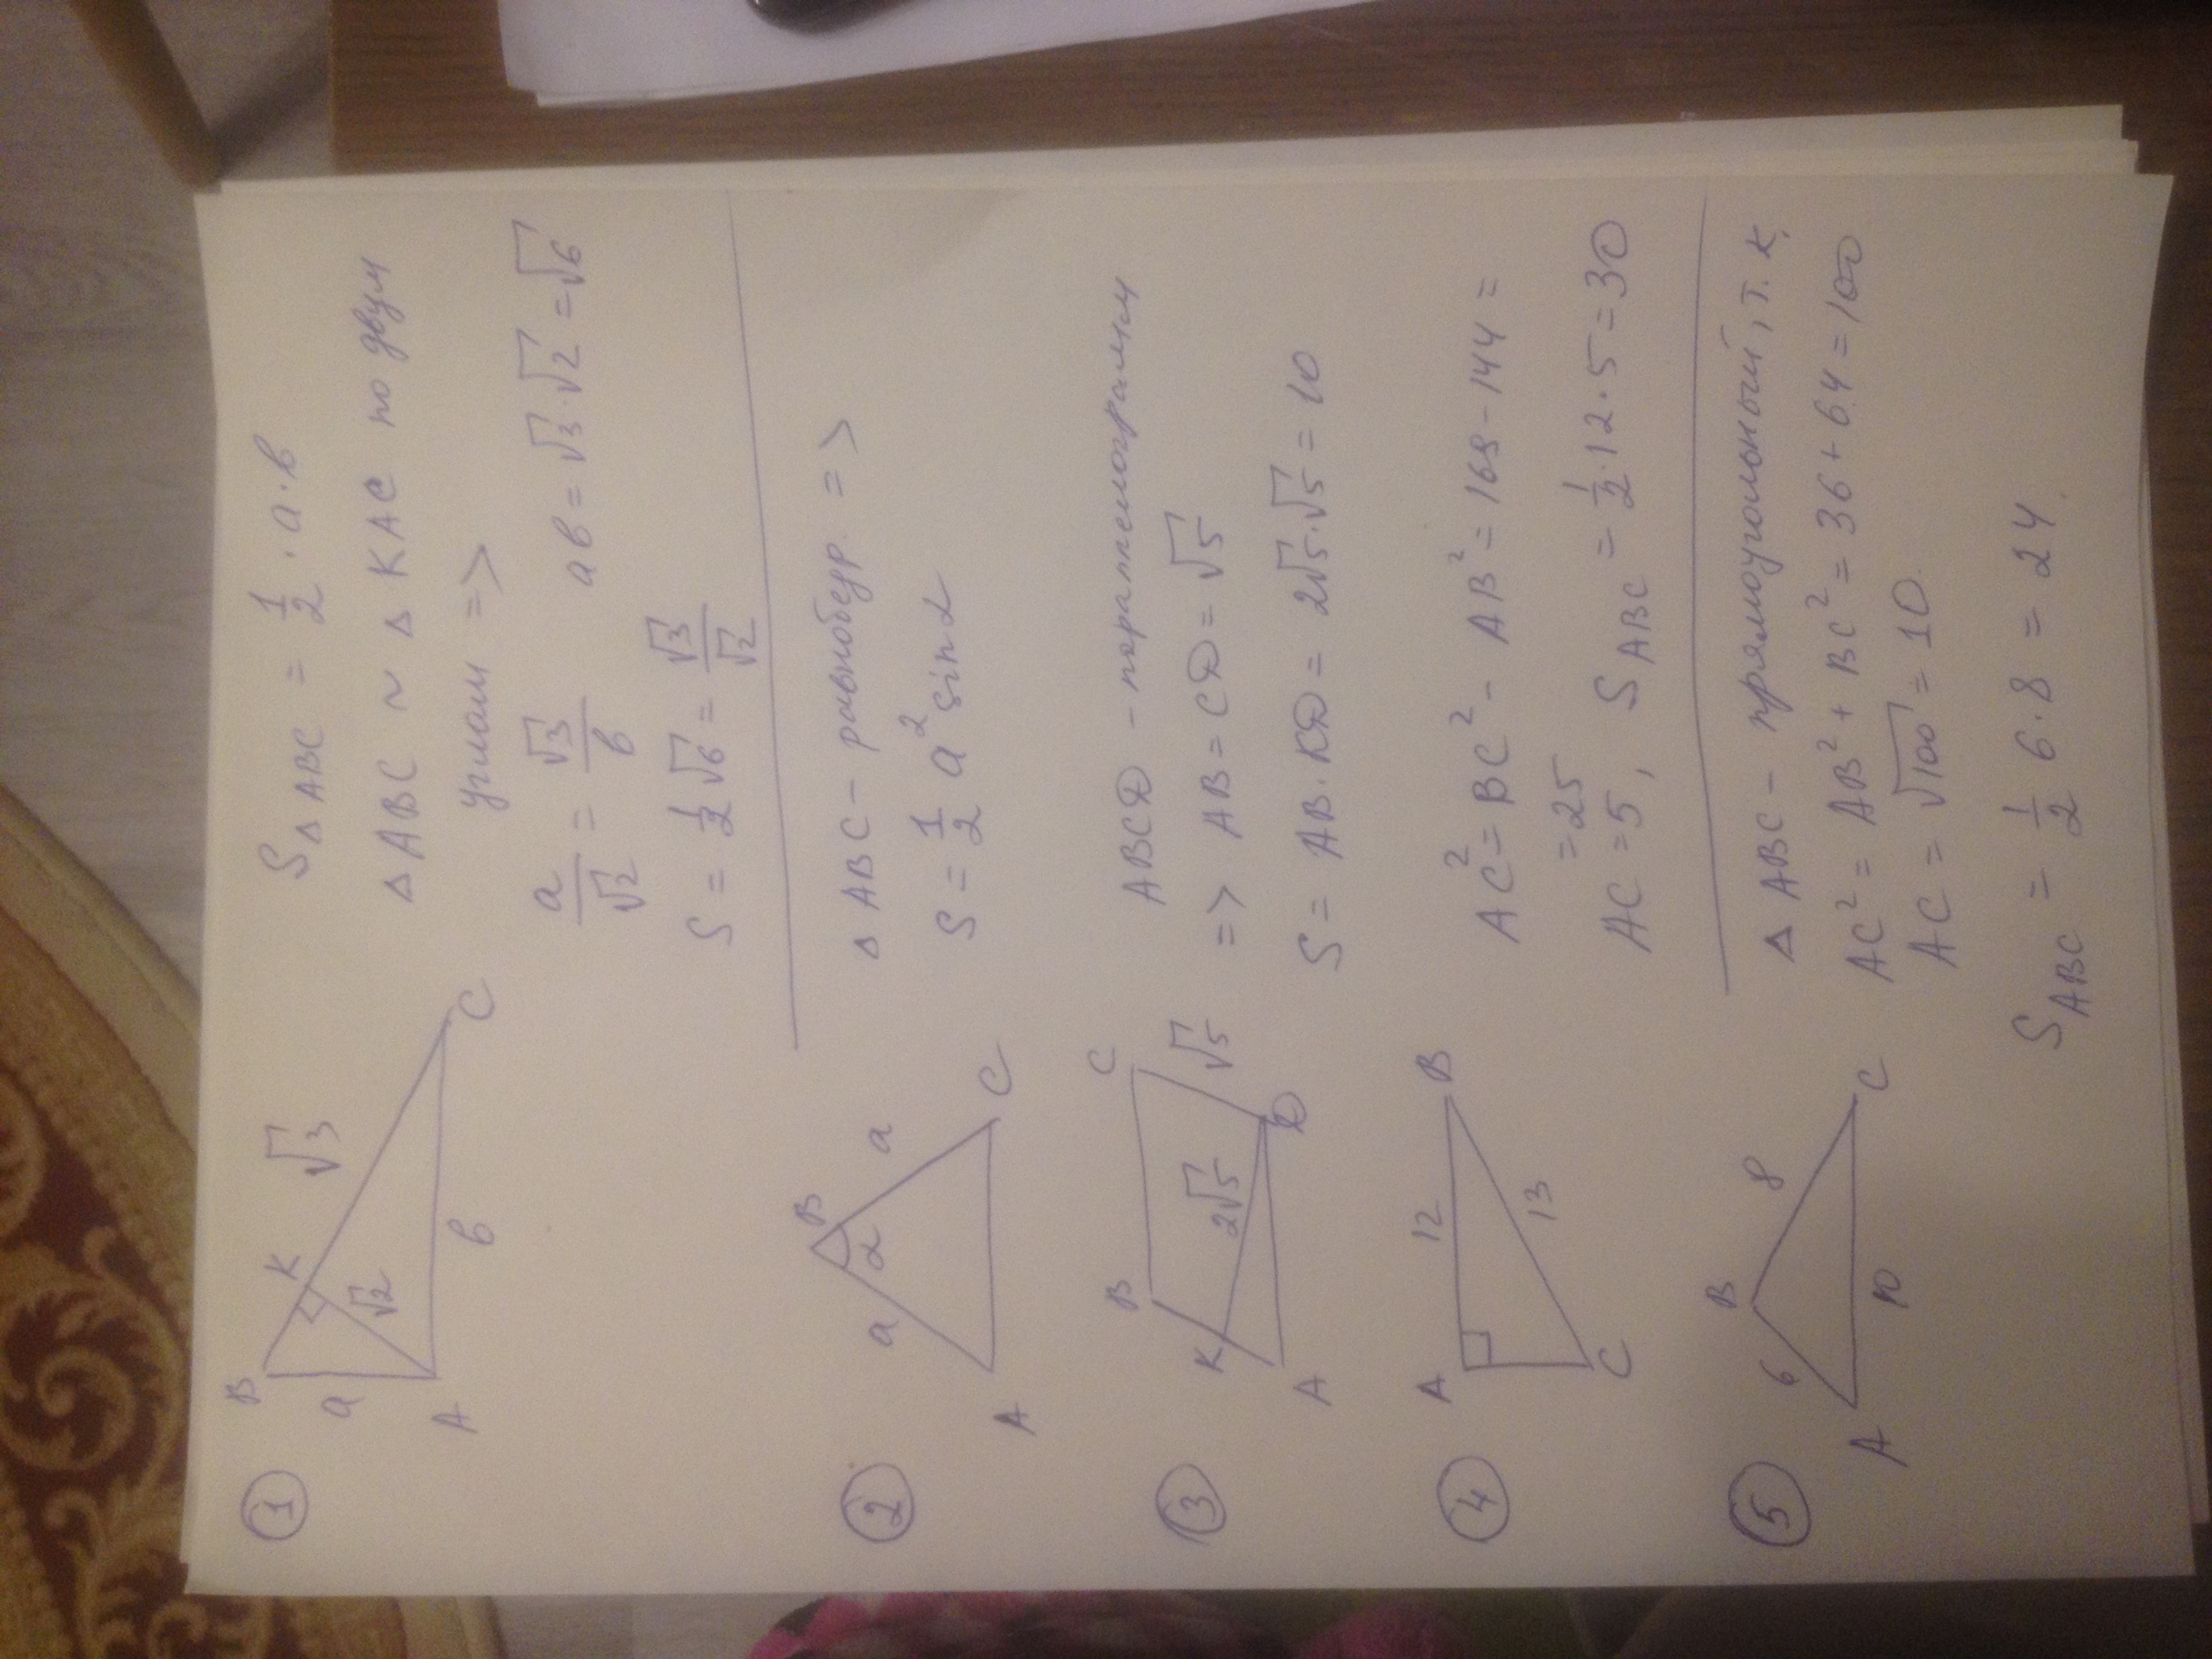 ①
B
K
√3
a
√2
A
b
C
S△ABC = 1/2 · a · b
△ABC ~ △KAC по двум
углам =>
a/√2 = √3/b ab = √3·√2 = √6
S = 1/2 √6 = √3/√2
②
B
a
α
a
A
C
△ABC – равнобедр. =>
S = 1/2 a² sin α
③
B
C
K
2√5
√5
A
D
ABCD – параллелограмм
=> AB = CD = √5
S = AB·KD = 2√5·√5 = 10
④
A
12
B
13
C
AC² = BC² - AB² = 169 - 144 =
= 25
AC = 5, S ABC = 1/2 · 12 · 5 = 30
⑤
B
6
8
A
10
C
△ABC – прямоугольный, т. к.
AC² = AB² + BC² = 36 + 64 = 100
AC = √100 = 10.
S ABC = 1/2 6·8 = 24.